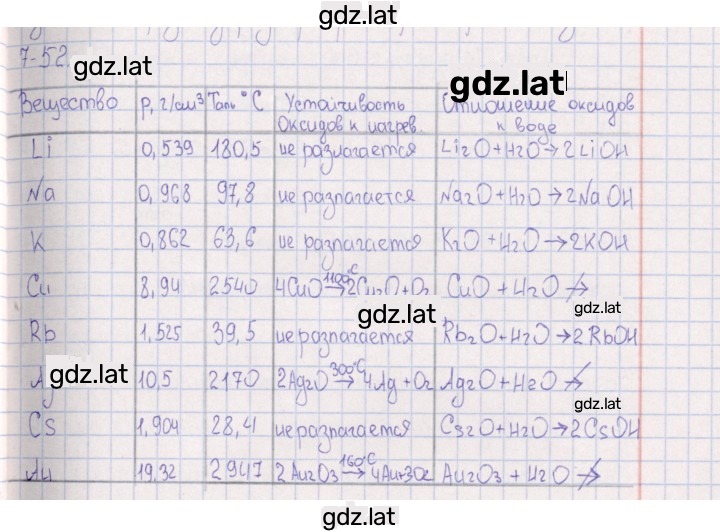 gdz.lat
7-52.
gdz.lat
gdz.lat
Вещество ρ, г/см³ Tпл °C Устойчивость оксидов к нагрев. Отношение оксидов к воде
Li 0,539 180,5 не разлагается Li₂O+H₂O→2LiOH
Na 0,968 97,8 не разлагается Na₂O+H₂O→2NaOH
K 0,862 63,6 не разлагается K₂O+H₂O→2KOH
Cu 8,94 2540 4CuO 1100°C→2Cu₂O+O₂ CuO+H₂O↛
gdz.lat
gdz.lat
Rb 1,525 39,5 не разлагается Rb₂O+H₂O→2RbOH
gdz.lat
Ag 10,5 2170 2Ag₂O 300°C→4Ag+O₂ Ag₂O+H₂O↛
gdz.lat
Cs 1,904 28,4 не разлагается Cs₂O+H₂O→2CsOH
Au 19,32 2947 2Au₂O₃ 160°C→4Au+3O₂ Au₂O₃+H₂O↛
gdz.lat
gdz.lat